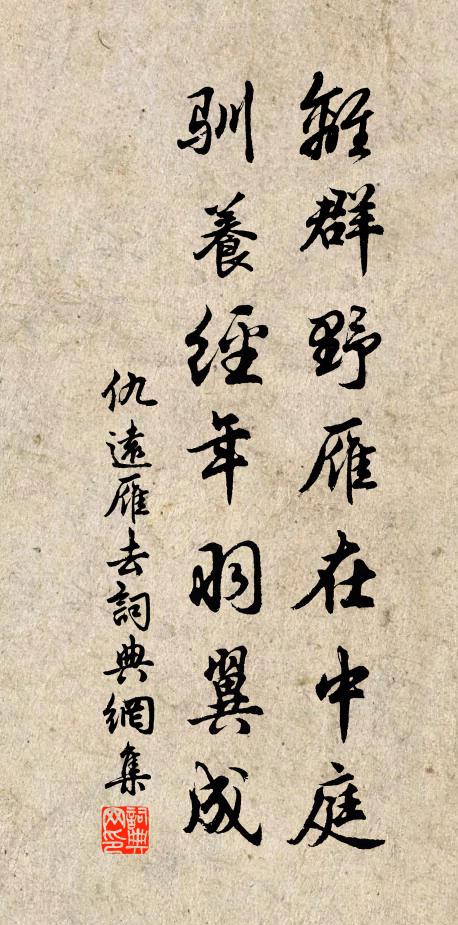 離群野雁在中庭
馴養經年羽翼成
仇遠雁去詞典網集
詞典網印